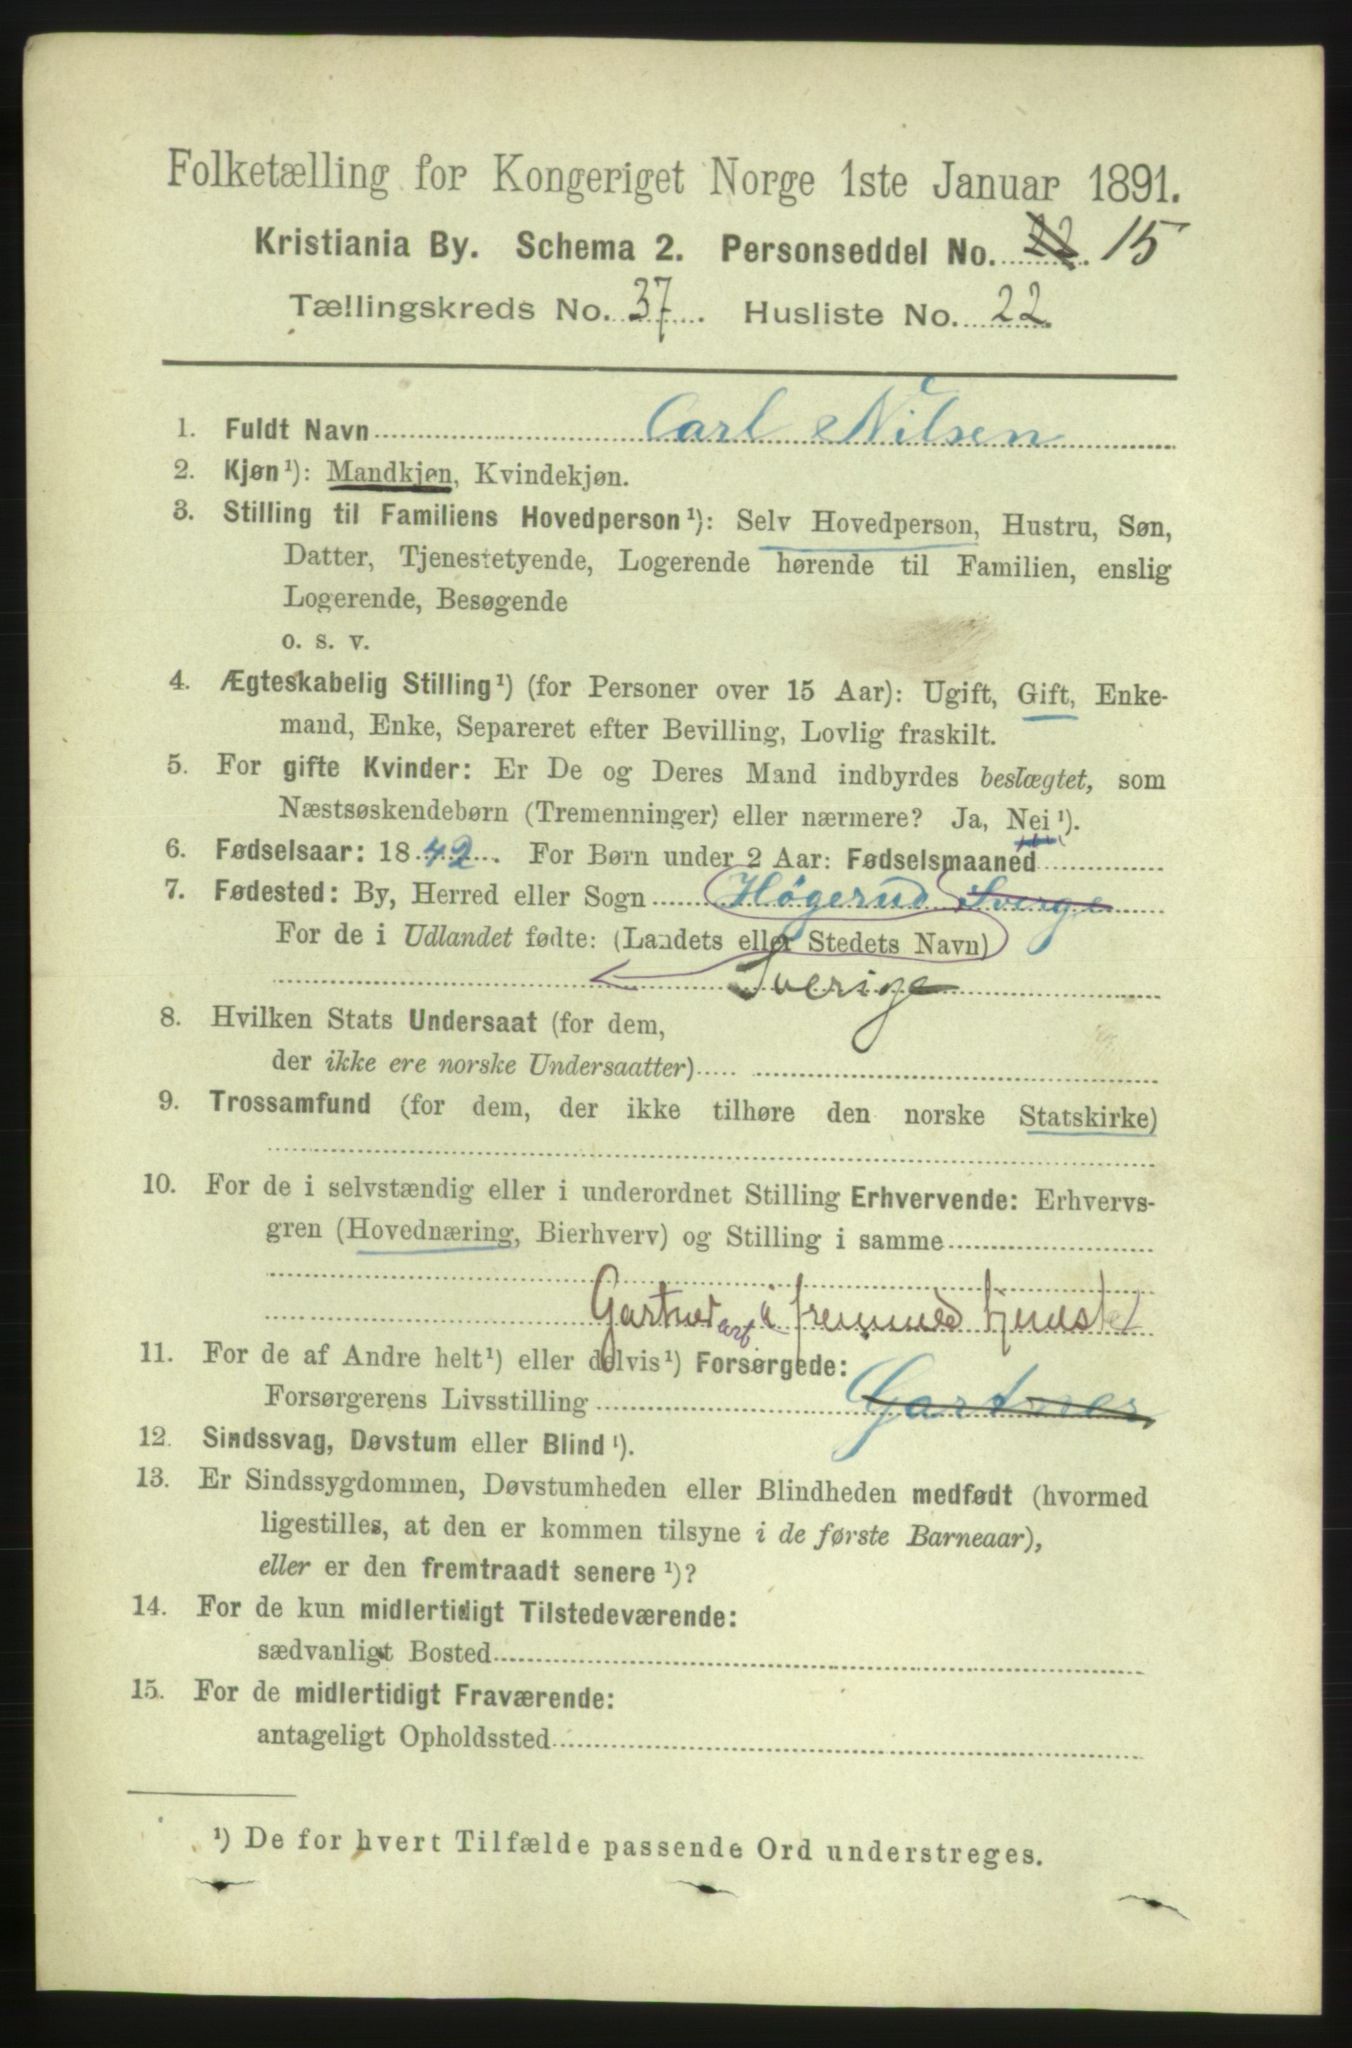 Folketælling for Kongeriget Norge 1ste Januar 1891.
Kristiania By. Schema 2. Personseddel No. 22 15
Tællingskreds No. 37. Husliste No. 22.
1. Fuldt Navn Carl Nilsen
2. Kjøn¹): Mandkjøn, Kvindekjøn.
3. Stilling til Familiens Hovedperson¹): Selv Hovedperson, Hustru, Søn,
Datter, Tjenestetyende, Logerende hørende til Familien, enslig
Logerende, Besøgende
o. s. v.
4. Ægteskabelig Stilling¹) (for Personer over 15 Aar): Ugift, Gift, Enke-
mand, Enke, Separeret efter Bevilling, Lovlig fraskilt.
5. For gifte Kvinder: Er De og Deres Mand indbyrdes beslægtet, som
Næstsøskendebørn (Tremenninger) eller nærmere? Ja, Nei¹).
6. Fødselsaar: 1842. For Børn under 2 Aar: Fødselsmaaned
7. Fødested: By, Herred eller Sogn Høgerud Sverge
For de i Udlandet fødte: (Landets eller Stedets Navn)
Sverige
8. Hvilken Stats Undersaat (for dem,
der ikke ere norske Undersaatter)
9. Trossamfund (for dem, der ikke tilhøre den norske Statskirke)
10. For de i selvstændig eller i underordnet Stilling Erhvervende: Erhvervs-
gren (Hovednæring, Bierhverv) og Stilling i samme
Gartner arb. i fremmed tjeneste
11. For de af Andre helt¹) eller delvis¹) Forsørgede:
Forsørgerens Livsstilling Gartner
12. Sindssvag, Døvstum eller Blind¹).
13. Er Sindssygdommen, Døvstumheden eller Blindheden medfødt (hvormed
ligestilles, at den er kommen tilsyne i de første Barneaar),
eller er den fremtraadt senere¹)?
14. For de kun midlertidigt Tilstedeværende:
sædvanligt Bosted
15. For de midlertidigt Fraværende:
antageligt Opholdssted
¹) De for hvert Tilfælde passende Ord understreges.